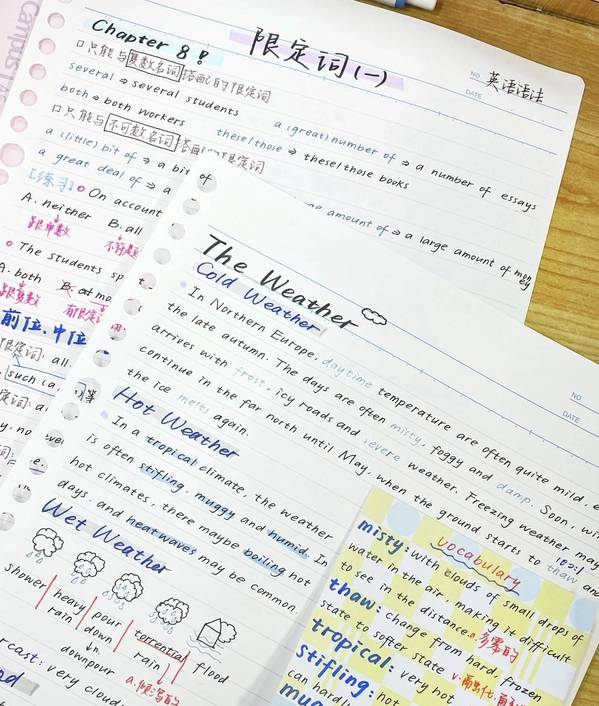 Campus
Chapter 8!
限定词(一)
NO.
DATE
英语语法
口只能与复数名词搭配的限定词
several ⇒ several students
both ⇒ both workers
a (great) number of ⇒ a number of essays
these/those ⇒ these/those books
口只能与不可数名词搭配的限定词
a (little) bit of ⇒ a bit of
a great deal of ⇒ a
amount of ⇒ a large amount of money
[练习] On account
A. neither B. all
跟单数
The students sp
A. both B.
跟复数
有限定
前位、中位
限定词: all
such (a
等
The Weather
Cold Weather
NO.
DATE
In Northern Europe, daytime temperature are often quite mild, e
the late autumn. The days are often misty, foggy and damp. Soon, wi
arrives with frost, icy roads and severe weather. Freezing weather may
continue in the far north until May, when the ground starts to thaw and
the ice melts again.
Hot Weather
In a tropical climate, the weather
is often stifling, muggy and humid. In
hot climates, there maybe boiling hot
days, and heatwaves may be common.
Wet Weather
shower
heavy rain
pour down
n.
downpour
torrential rain
flood
rcast: very cloudy
vocabulary
misty: with clouds of small drops of
water in the air, making it difficult
to see in the distance a. 多雾的
thaw: change from hard, frozen
state to softer state
tropical: very hot
stifling: hot
can hardly
mug